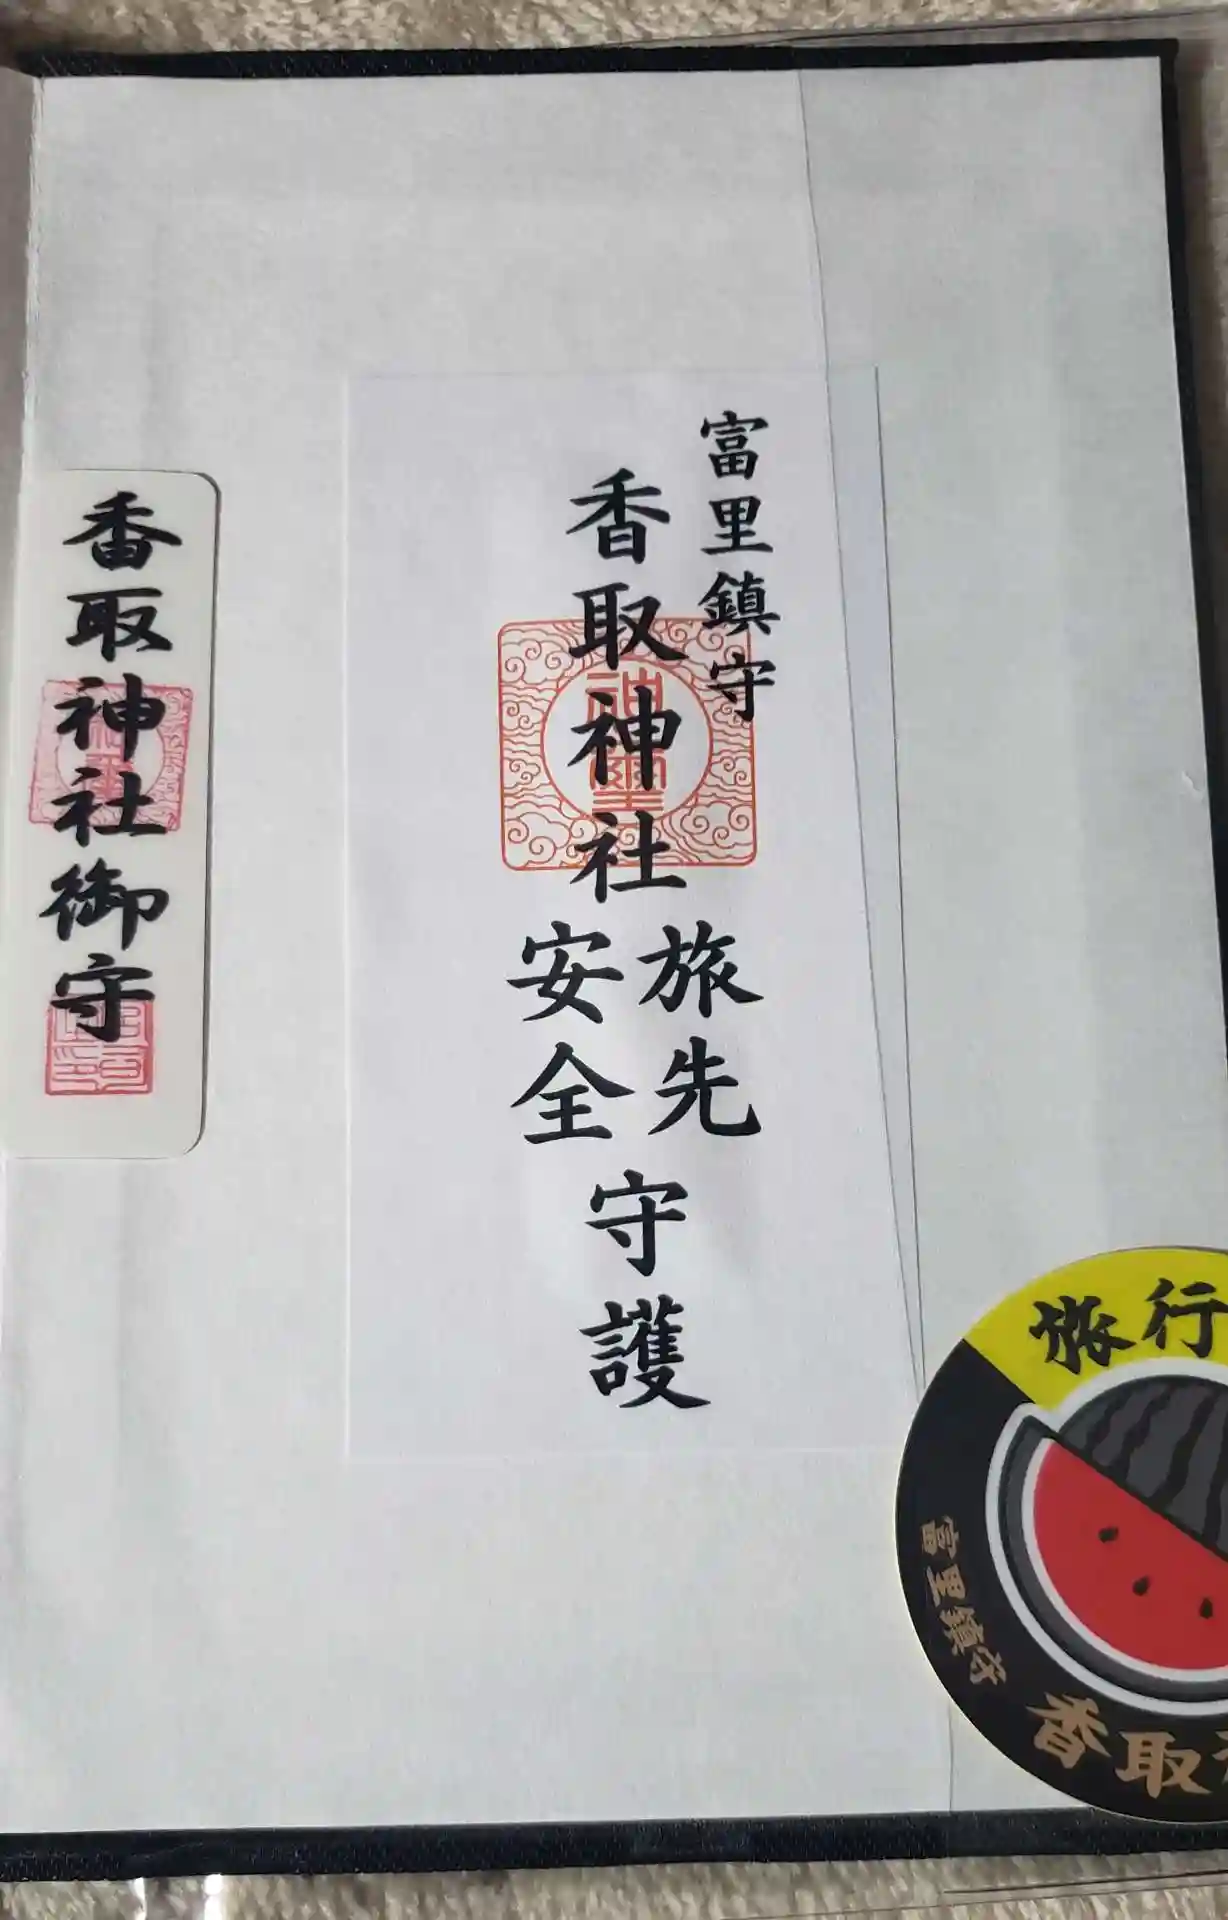 富里鎮守
香取神社
旅先
安全
守護
香取神社御守
神璽
旅行
富里鎮守
香取